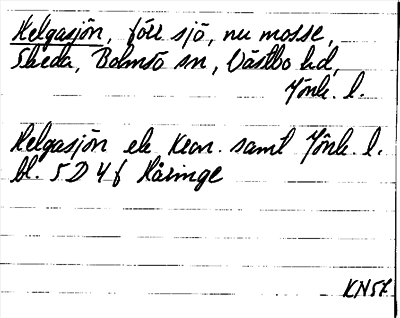 Helgasjön, förr sjö, nu mosse,
Skeda, Bolmsö sn, Västbo hd,
Jönk. l.
Helgasjön ek Kron. samt Jönk. l.
bl. 5D 4f Håringe
KN57